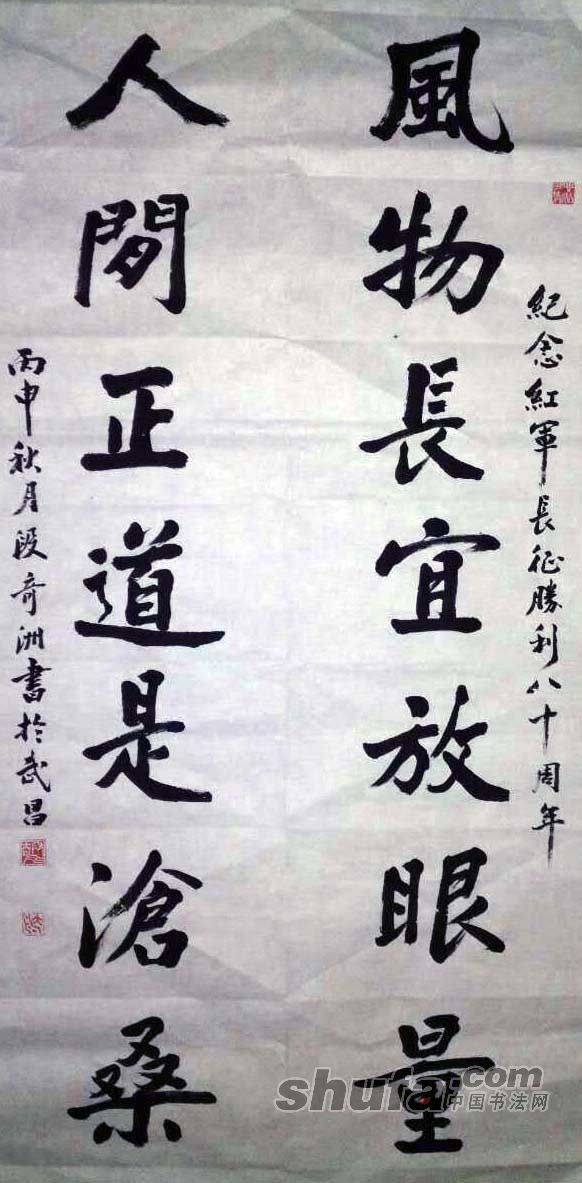 紀念紅軍長征勝利八十周年
風物長宜放眼量
人間正道是滄桑
丙申秋月段奇洲書於武昌
shufa.com
中国书法网